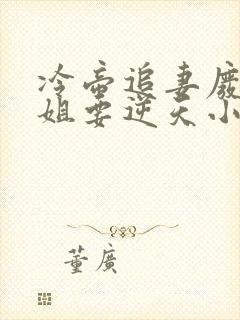 冷帝追妻廢
姐要逆天小
董廣